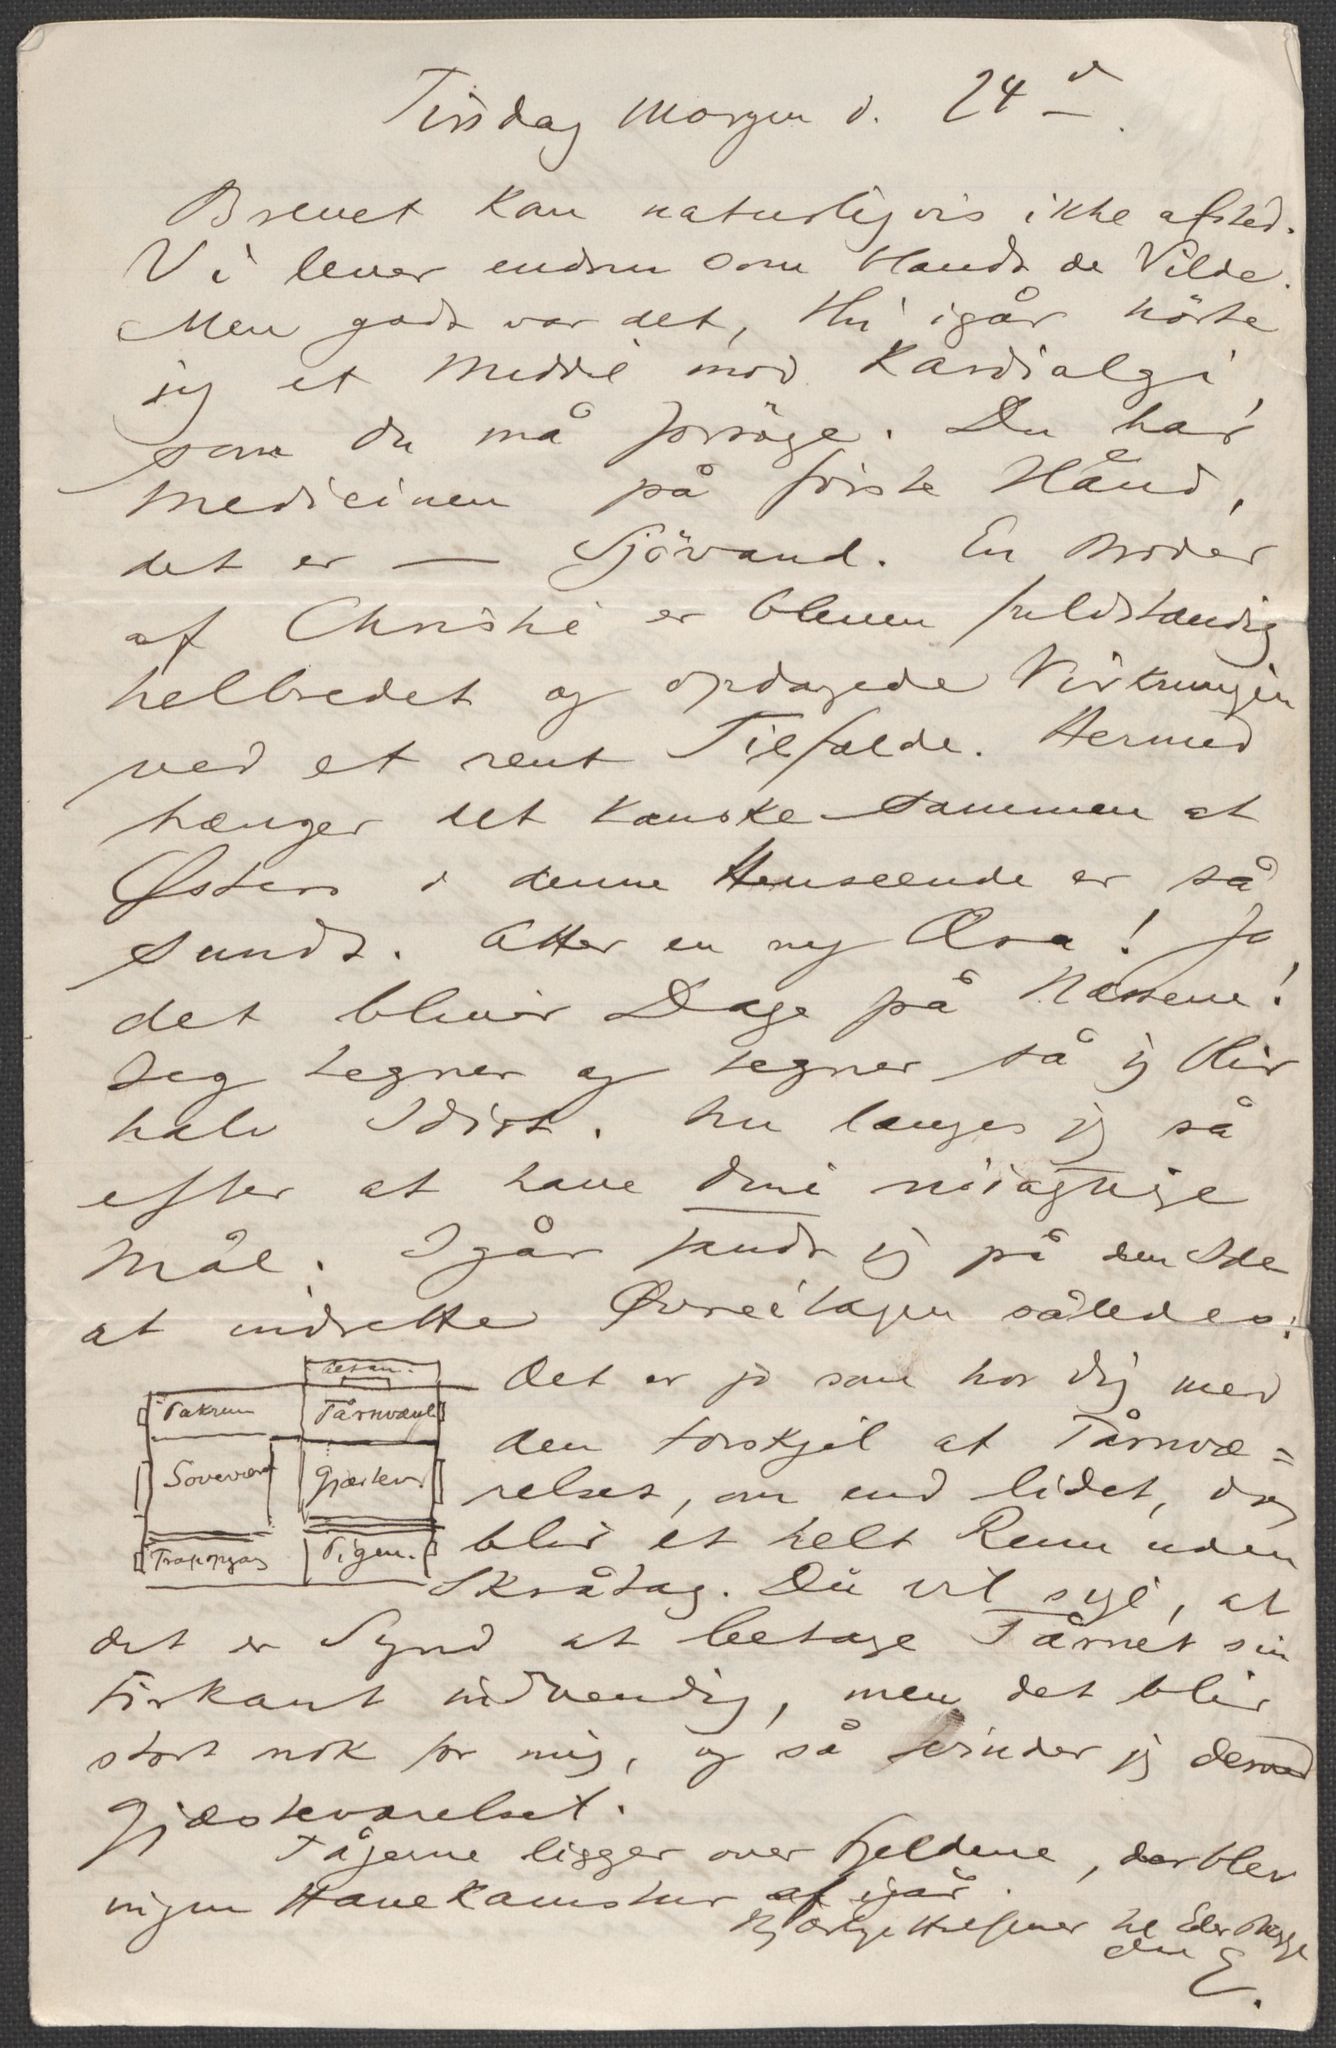 Tirsdag Morgen d. 24d
Brevet kan naturligvis ikke afsted.
Vi lever endnu som blandt de Vilde.
Men godt var det, thi igår hörte
jeg et Middel mod Kardialgi
som du må forsöge. Du har
Medicinen på første Hånd,
det er — Sjövand. En Broder
af Christie er bleven fuldstændig
helbredet og opdagede Virkningen
ved et rent Tilfælde. Hermed
hænger det kanske sammen at
Østers i denne Henseende er så
sundt. Atter en ny Æra! Ja
det bliver Dage på Næssene!
Jeg tegner og tegner så jeg blir
halv Idiot. Nu længes jeg så
efter at have dine nöiagtige
Mål. Igår fandt jeg på den Ide
at indrette Øvreetagen således:
Altan.
Pakrum Tårnværel
Soveværel Gjæstev.
Trapopgag Pigev.
det er jo som hos dig med
den Forskjel at Tårnvæ=
relset, om end lidet, dog
blir et helt Rum uden
Skråtag. Du vil sige, at
det er Synd at betage Tårnet sin
Firkant indvendig, men det blir
stort nok for mig, og så vinder jeg derved
Gjæsteværelset.
Tågerne ligger over Fjeldene, der blev
ingen Hanekamstur af igår.
Hjærtige Hilsener til Eder begge
din E.